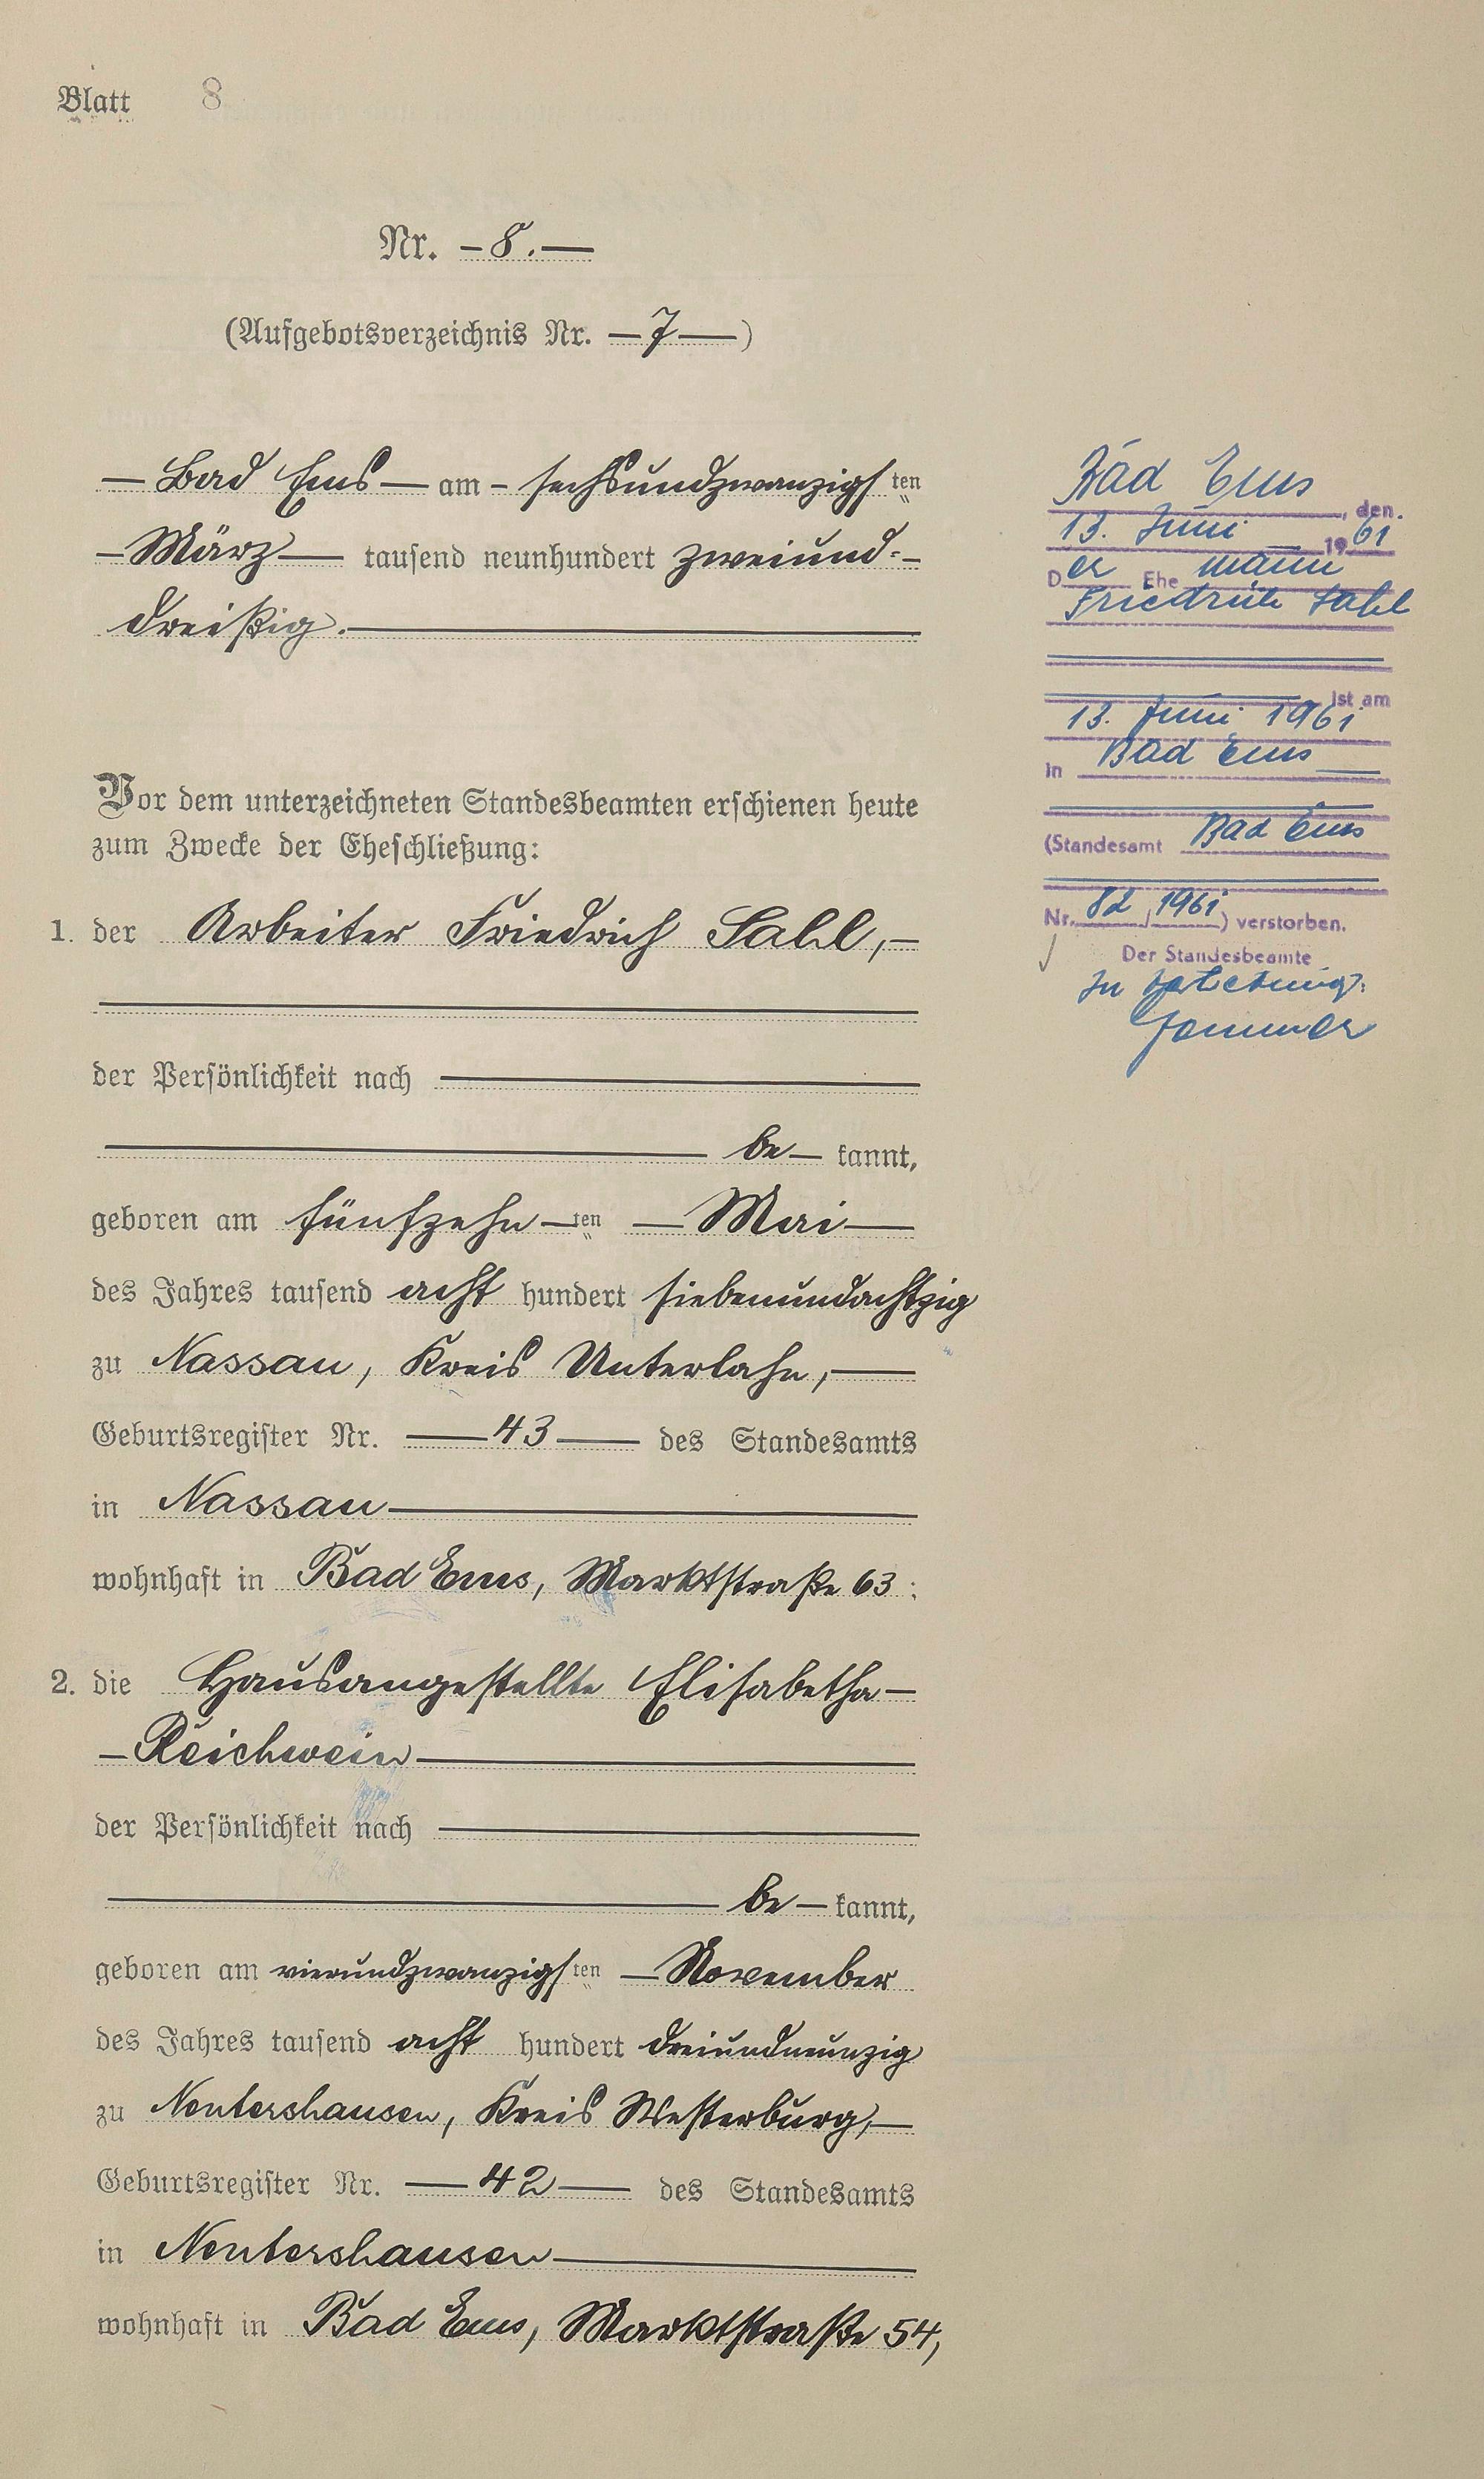 Blatt 8
Nr. – 8. —
(Aufgebotsverzeichnis Nr. — 7 —)
— Bad Ems — am – sechsundzwanzigsten
– März — tausend neunhundert zweiund-
dreißig.
Vor dem unterzeichneten Standesbeamten erschienen heute
zum Zwecke der Eheschließung:
1. der Arbeiter Friedrich Sahl, –
der Persönlichkeit nach
be – kannt,
geboren am fünfzehn – ten — Mai —
des Jahres tausend acht hundert siebenundachtzig
zu Nassau, Kreis Unterlahn, —
Geburtsregister Nr. — 43 — des Standesamts
in Nassau —
wohnhaft in Bad Ems, Marktstraße 63 :
2. die Hausangestellte Elisabetha –
– Reichwein —
der Persönlichkeit nach
be – kannt,
geboren am vierundzwanzigsten – November
des Jahres tausend acht hundert dreiundneunzig
zu Nentershausen, Kreis Westerburg, –
Geburtsregister Nr. — 42 — des Standesamts
in Nentershausen —
wohnhaft in Bad Ems, Marktstraße 54,
Bad Ems
, den.
13. Juni 1961
Der Ehe mann
Friedrich Sahl
ist am
13. Juni 1961
in Bad Ems
(Standesamt Bad Ems
Nr. 82 / 1961) verstorben.
Der Standesbeamte
In Vertretung: